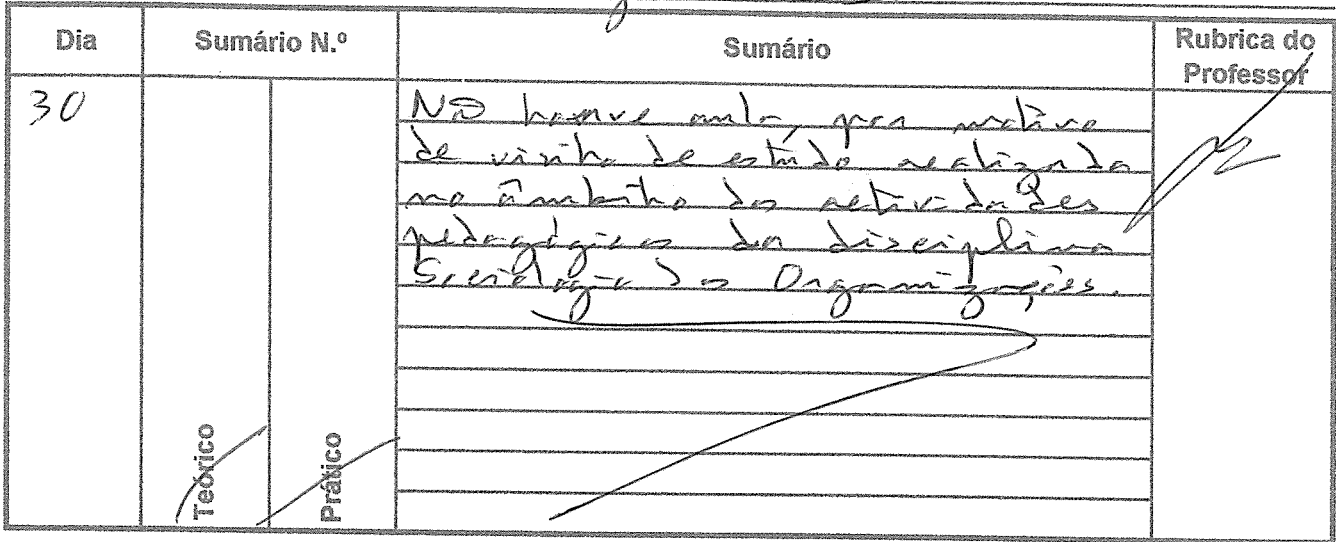 Dia Sumário N.º Sumário Rubrica do Professor
30
Não houve aula, por motivo
de visita de estudo realizada
no âmbito das actividades
pedagógicas da disciplina
Sociologia das Organizações.
Teórico
Prático